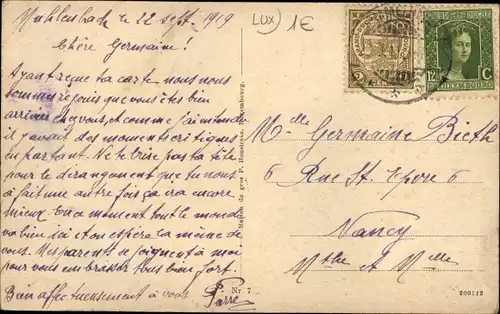 Mühlenbach le 22 sept. 1919
(LUX) 1€
Chère Germaine!
Ayant reçue ta carte nous nous
sommes réjouis que vous êtes bien
arrivées chez vous, et comme j'ai entendu
il y avait des moments critiques
en partant. Ne te brise pas ta tête
pour le dérangement que tu nous
a fait une autre fois ça ira encore
mieux. En ce moment tout le monde
va bien ici et on espère la même de
vous. Mes parents se joignent à moi
pour vous embrasser tous bien fort.
Bien affectueusement à vous
Pierre
Maison de gros P. Houstraas, Luxembourg.
Nr 7
2
12½ C
LUXEMBOURG
Mlle Germaine Bieth
6 Rue St. Epvre 6
Nancy
Mthe et Mlle
200112